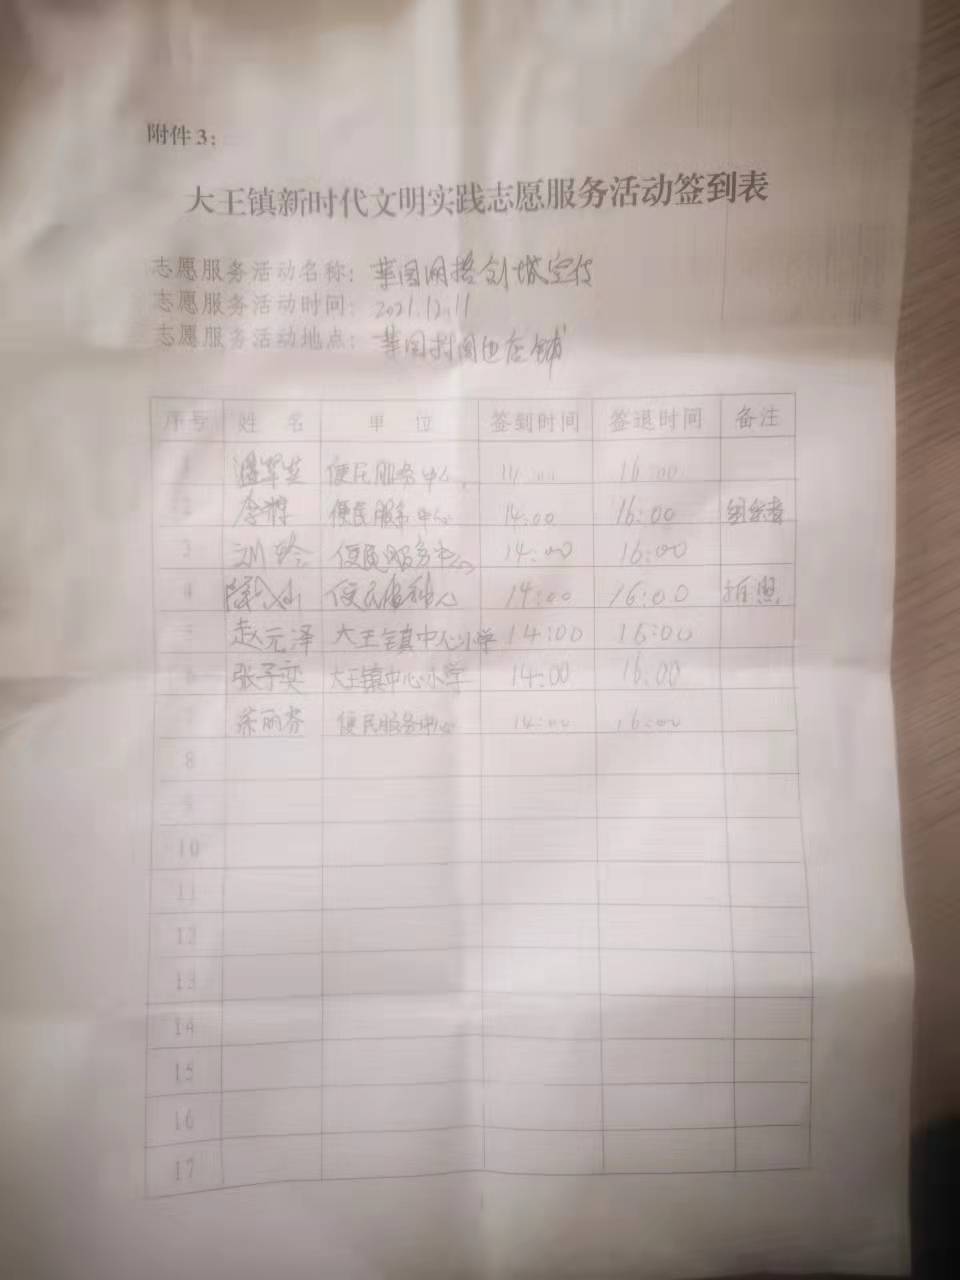 附件3：
大王镇新时代文明实践志愿服务活动签到表
志愿服务活动名称：网格创城宣传
志愿服务活动时间：2021.12.11
志愿服务活动地点：村周边店铺
序号 姓名 单位 签到时间 签退时间 备注
1 便民服务中心 16:00
2 便民服务中心 14:00 16:00 组织者
3 刘 便民服务中心 14:00 16:00
4 便民服务中心 14:00 16:00 拍照
5 赵元泽 大王镇中心小学 14:00 16:00
6 张子奕 大王镇中心小学 14:00 16:00
7 丽芬 便民服务中心 14:00 16:00
8
9
10
11
12
13
14
15
16
17